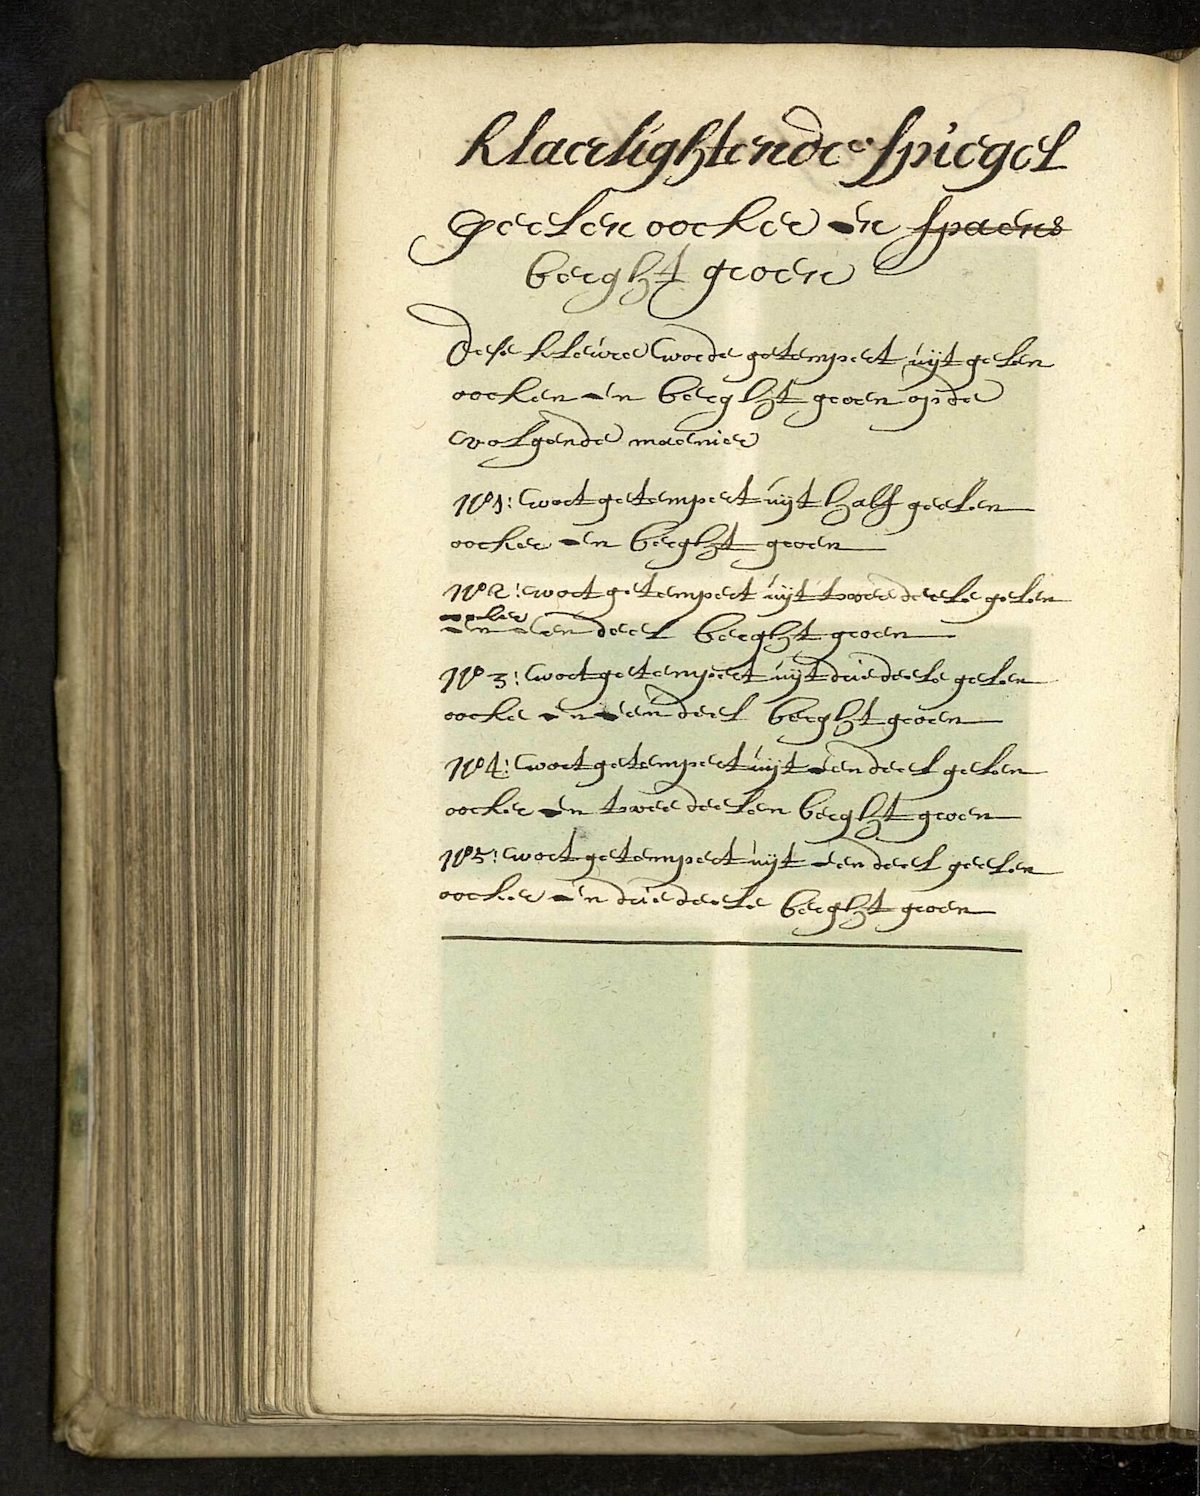 Klaerlightende Spiegel
Geelen oocker en spaens
berght groen
Dese kleure worde getempert uÿt gelen
oocker en berght groen op de
volgende maenier
No 1: wort getempert uÿt half geelen
oocker en berght groen
No 2: wort getempert uÿt twee deele gelen
oocker
en een deel berght groen
No 3: wort getempert uÿt drie deele gelen
oocke en een deel berght groen
No 4: wort getempert uÿt een deel gelen
oocker en twee deelen berght groen
No 5: wort getempert uÿt een deel geelen
oocker en drie deele berght groen